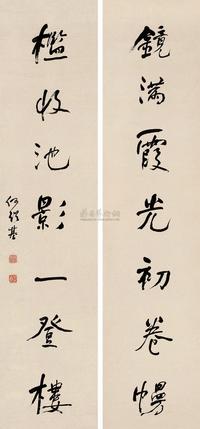 鏡满霞光初卷幔
檻收池影一登樓
何紹基